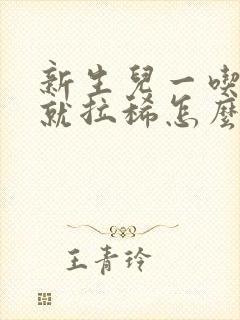 新生兒一喫
就拉稀怎麼
王青玲